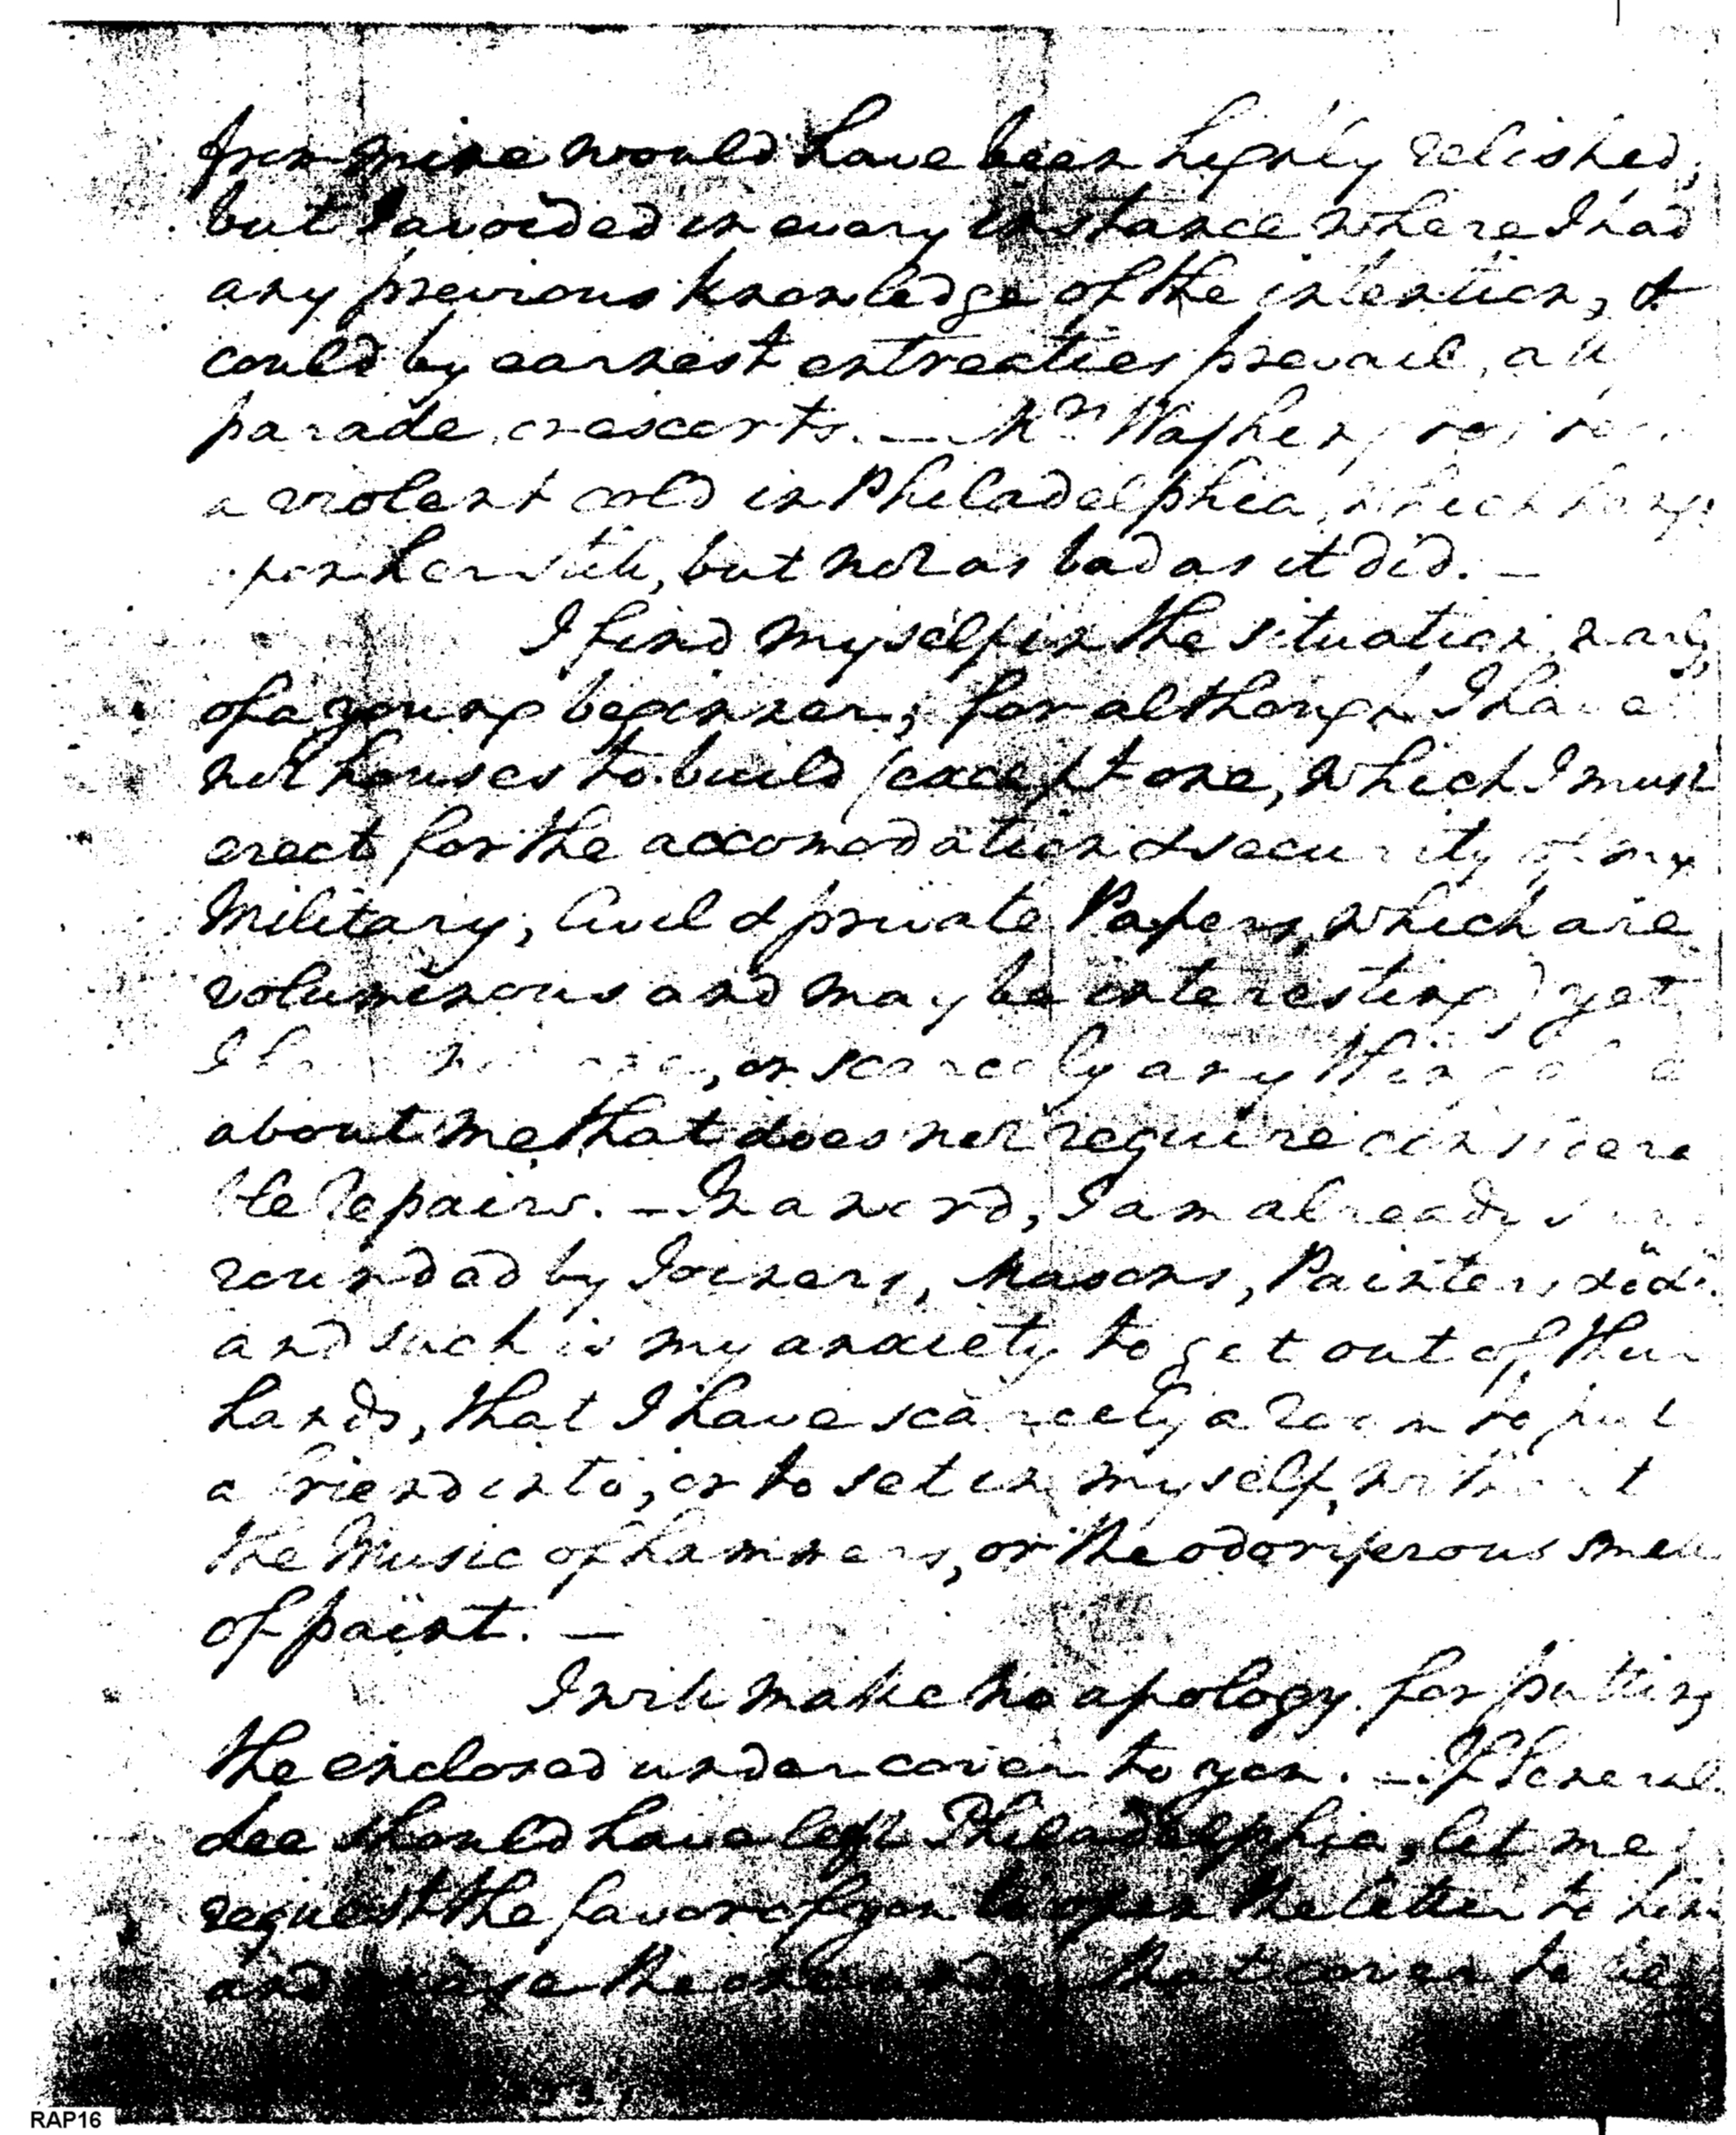 from mine would have been highly relished;
but I avoided in every instance where I had
any previous knowledge of the intention, &
could by earnest entreaties prevail, all
parade, or escorts. — Mrs Washing
a violent cold in Philadelphia, which hangs
upon her still, but not as bad as it did. —
I find myself in the situation, nearly,
of a young beginner; for although I have
not houses to build (except one, which I must
erect for the accomodation & security of my
Military, Civil & private Papers, which are
voluminous and may be interesting) yet
I have , or scarcely any thing
about me that does not require considera
ble repairs. — In a word, I am already sur
rounded by Joiners, Masons, Painters &c &c
and such is my anxiety to get out of their
hands, that I have scarcely a room to put
a friend into, or to set in myself, without
the Music of hammers, or the odoriferous smell
of paint. —
I will make no apology for putting
the enclosed under cover to you. — If General
Lee should have left Philadelphia, let me
request the favor of you to open the letter to him
and the under that cover to
RAP16